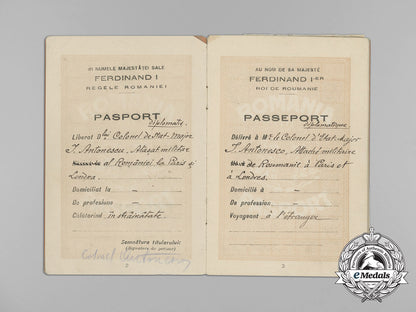 IN NUMELE MAJESTĂȚEI SALE
FERDINAND I
REGELE ROMANIEI
PASPORT
diplomatic
Liberat D-lui Colonel de Stat-Major
I. Antonescu, Atașat militar
al României la Paris și
Londra.
Domiciliat la —
De profesiune —
Călătorind în străinătate
Semnătura titularului:
(Signature du porteur)
Colonel
2
AU NOM DE SA MAJESTÉ
FERDINAND I-ER
ROI DE ROUMANIE
PASSEPORT
diplomatique
Délivré à Mr. le Colonel d'Etat-Major
I. Antonescu, Attaché militaire
de Roumanie à Paris et
à Londres.
Domicilié à —
De profession —
Voyageant à l'étranger
3
eMedals